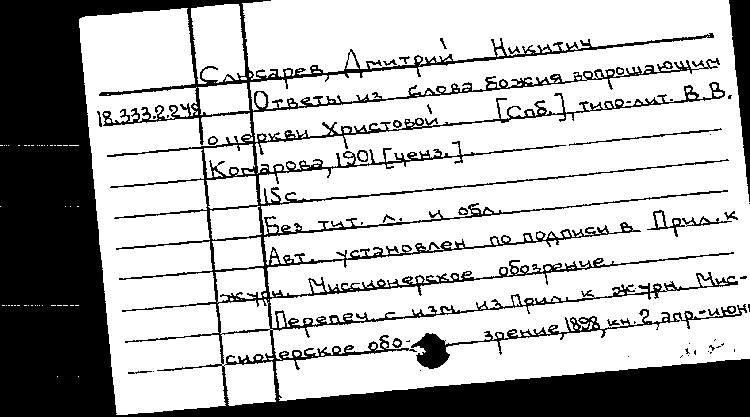 Слюсарев, Дмитрий Никитич
18.333.2.249. Ответы из слова божия вопрошающим
о церкви Христовой. [Спб.], типо-лит. В.В.
Комарова, 1901 [ценз.].
15с.
Без тит. л. и обл.
Авт. установлен по подписи в Прил. к
журн. Миссионерское обозрение.
Перепеч. с изм. из Прил. к журн. Мис-
сионерское обо- зрение, 1898, кн. 2, апр.-июнь